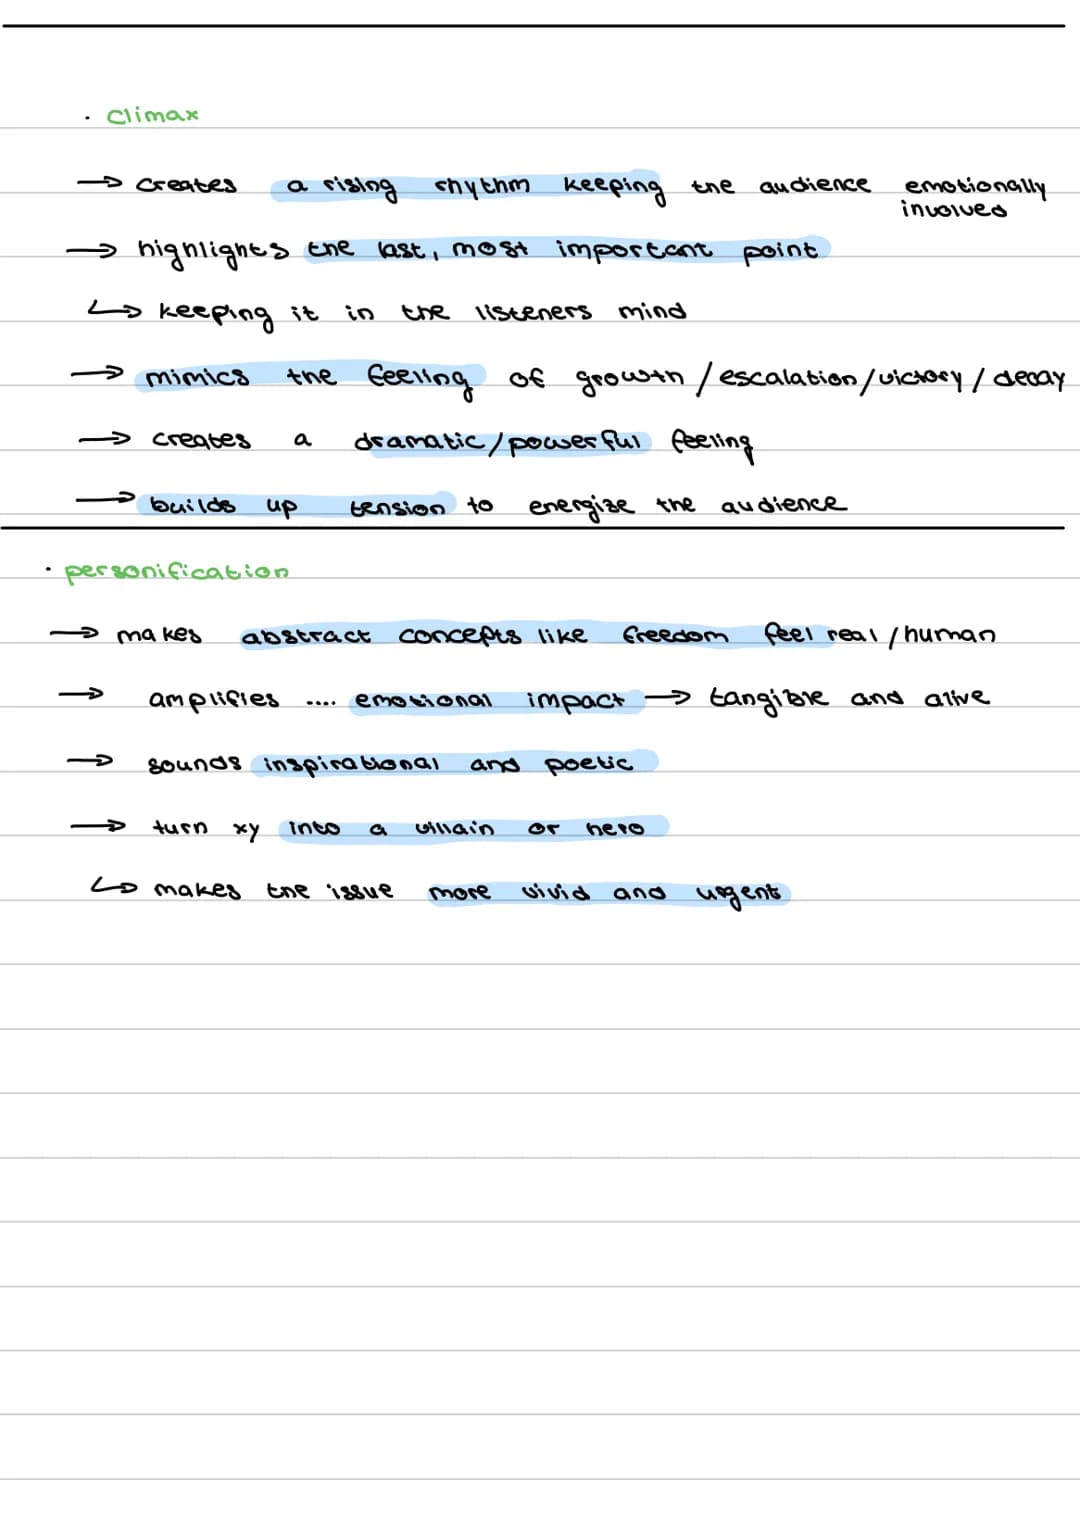 · Climax
→ creates a rising rhythm keeping the audience emotionally
involved
→ highlights the last, most important point
↳ keeping it in the listeners mind
→ mimics the feeling of growth / escalation/victory / decay
→ creates a dramatic/powerful feeling
→ builds up tension to energize the audience
· personification
→ makes abstract concepts like freedom feel real / human
→ amplifies .... emotional impact → tangible and alive
→ sounds inspirational and poetic
→ turn xy into a villain or hero
↳ makes the issue more vivid and urgent